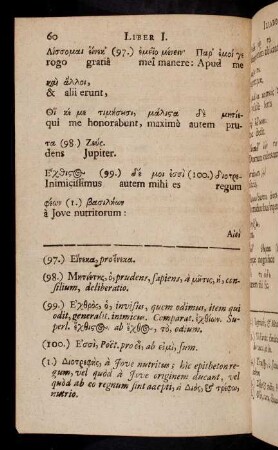 60 LIBER I.
Λίσσομαι εἵνεκ' (97.) ἐμεῖο μένειν· Παρ' ἐμοί γε
rogo gratiâ mei manere: Apud me
καὶ ἄλλοι,
& alii erunt,
Οἵ κέ με τιμήσουσι, μάλιςα δὲ μητίε-
qui me honorabunt, maximè autem pru-
τα (98.) Ζεύς.
dens Jupiter.
Ἔχθιςος (99.) δέ μοι ἐσσὶ (100.) διοτρε-
Inimicissimus autem mihi es regum
φέων (1.) βασιλήων
à Jove nutritorum:
Αἰεὶ
(97.) Εἵνεκα, pro ἕνεκα.
(98.) Μητιέτης, ὁ, prudens, sapiens, à μῆτις, ἡ, con-
silium, deliberatio.
(99.) Ἐχθρὸς, ὁ, invisus, quem odimus, item qui
odit, generalit. inimicus. Comparat. ἐχθίων. Su-
perl. ἔχθιςος ab ἔχθος, τὸ, odium.
(100.) Ἐσσὶ, Poët. pro εἶς, ab εἰμὶ, sum.
(1.) Διοτρεφὴς, à Jove nutritus; hic epitheton re-
gum, vel quòd à Jove originem ducant, vel
quòd ab eo regnum sint adepti, à Διὸς, & τρέφω,
nutrio.